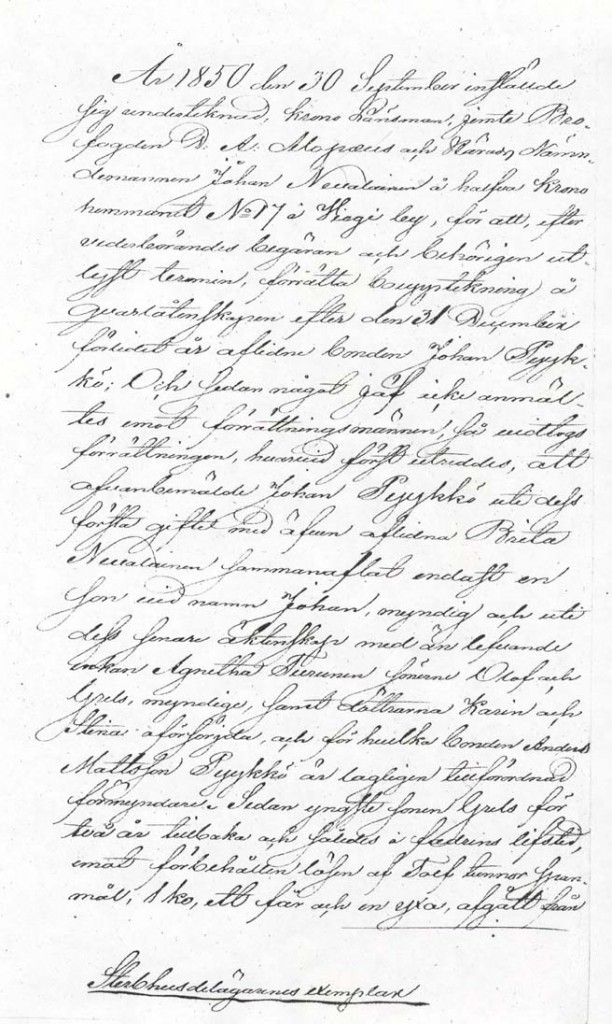 År 1850 den 30 September inställde
sig undertecknad, krono Länsman, jemte Bro-
fogden D. A. Mopæus och Härads Nämn-
demannen Johan Neualainen å halfva Krono
hemmanet No 17 i Kiogi by, för att, efter
vederbörandes begäran och behörigen ut-
lyst termin, förrätta bouppteckning å
qvarlåtenskapen efter den 31 December
förledet år aflidne bonden Johan Pyyk-
kö; Och sedan något jäf icke anmäl-
tes emot förrättningsmännen, så vidtogs
förrättningen, hvarvid först utreddes, att
ofvanbemälde Johan Pyykkö uti dess
första gifte med äfven aflidna Brita
Neualainen sammanaflat endast en
son vid namn Johan, myndig och uti
dess senare äktenskap med än lefvande
enkan Agnetha Turunen sönerne Olof och
Grels, myndige, samt döttrarna Karin och
Stina oförsörgda, och för hvilka bonden Anders
Mattsson Pyykkö är lagligen tillförordnad
förmyndare. Sedan yngste sonen Grels för
två år tillbaka och således i fadrens lifstid,
emot förbehållen lösen af Tolf tunnor span-
mål, 1 ko, ett får och en yxa, afgått från
Sterbhusdelägarenes exemplar